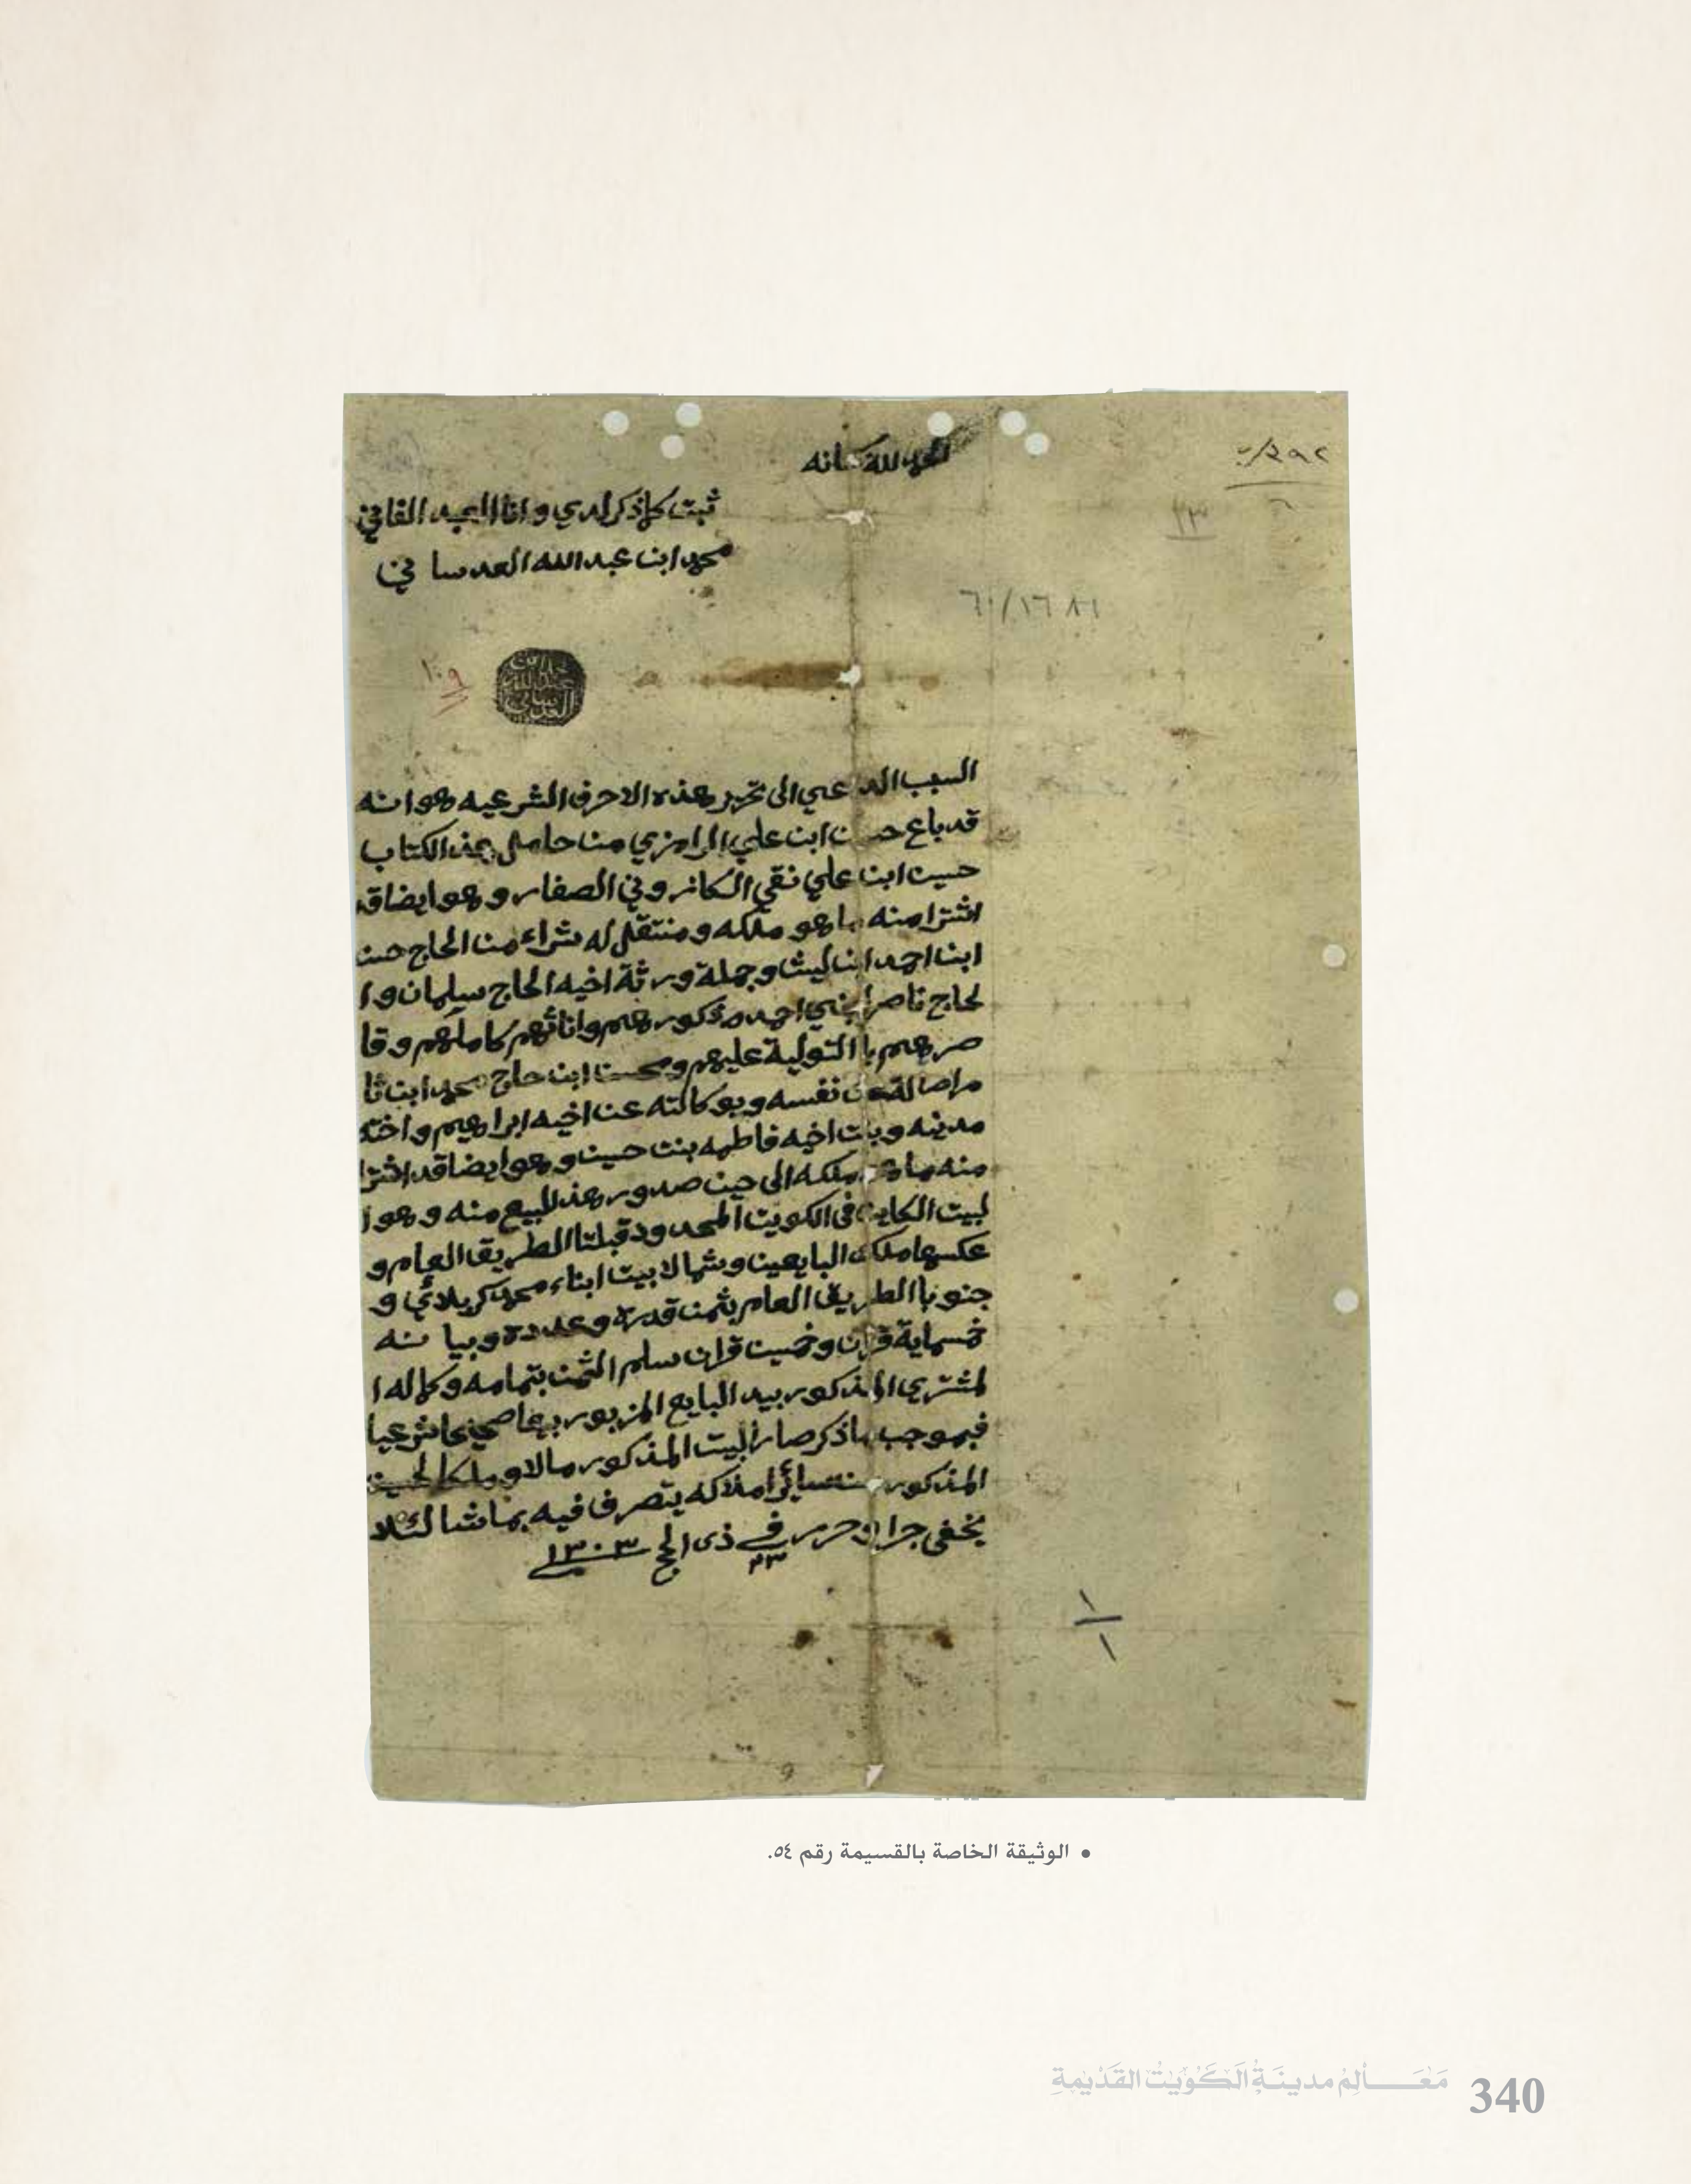 الحمد لله سبحانه
ثبت كلما ذكر لدي وانا العبد الفاني
محمد ابن عبدالله العدساني
٦٠/١٦٨١
١٠٩
السبب الداعي الى تحرير هذه الاحرف الشرعيه هو انه
قد باع حسن ابن علي الرامزي من حامل هذ الكتاب
حسين ابن علي نقي الكازروني الصفار وهو ايضا قد
اشترا منه ما هو ملكه ومنتقل له بشراء من الحاج حسن
ابن احمد ابن ليث وجملة ورثة اخيه الحاج سلمان وا
لحاج ناصر ابني احمد ذكورهم واناثهم كاملهم وقا
صرهم با التولية عليهم ومحسن ابن حاج محمد ابن
اصالة عن نفسه وبوكالته عن اخيه ابراهيم واخته
مدينه وبنت اخيه فاطمه بنت حسين وهو ايضا قد اشترا
منه ما هو ملكه الى حين صدور هذ البيع منه وهو ا
لبيت الكاين في الكويت المحدود قبلتا الطريق العام و
عكسها ملك البايعين وشمالا بيت ابناء محمد كربلائي و
جنوبا الطريق العام بثمن قدره وعدده وبيانه
خمسماية قران وخمسين قران سلم الثمن بتمامه وكماله ا
لمشتري المذكور بيد البايع المزبور بيعا صحيحا شرعيا
فبموجب ما ذكر صار البيت المذكور مالا وملكا لحسين
المذكور من سائر املاكه يتصرف فيه بما شا لئلا
يخفى جرا وحرر في ٢٣ ذى الحج ١٣٠٣
١/١
• الوثيقة الخاصة بالقسيمة رقم ٥٤.
مَعَالِمُ مدينَةِ الكُوَيْتِ القَدْيمَةِ 340